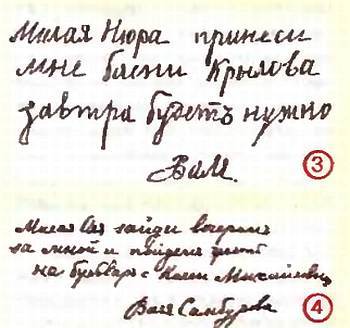 Милая Нюра принеси
мне басни Крылова
завтра будетъ нужно
Валя.
3
Милая Оля зайди вечеромъ
за мной и пойдемъ
на бульваръ с Колей Михайлович
Валя Самбурова
4